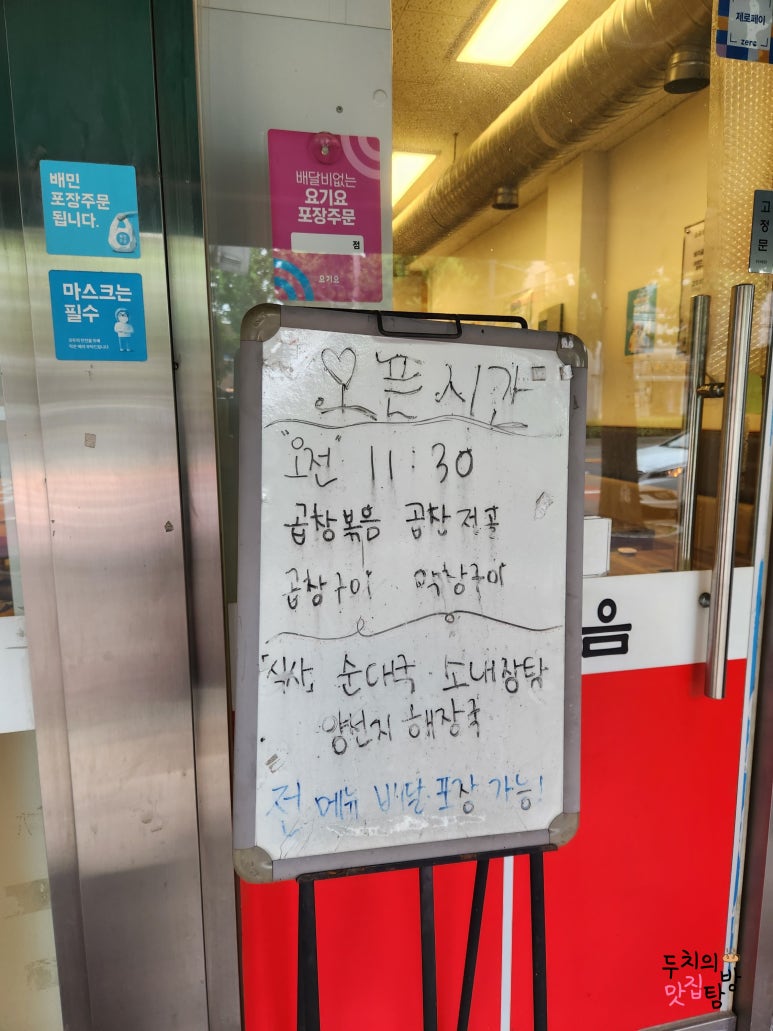 제로페이
zero
배민
포장주문
됩니다.
마스크는
필수
배달비없는
요기요
포장주문
점
요기요
고정문
오픈시간
"오전" 11:30
곱창볶음 곱찬전골
곱창구이 막창구이
「식사」 순대국 소내장탕
양선지 해장국
전 메뉴 배달 포장 가능!
음
두치의
맛집탐방